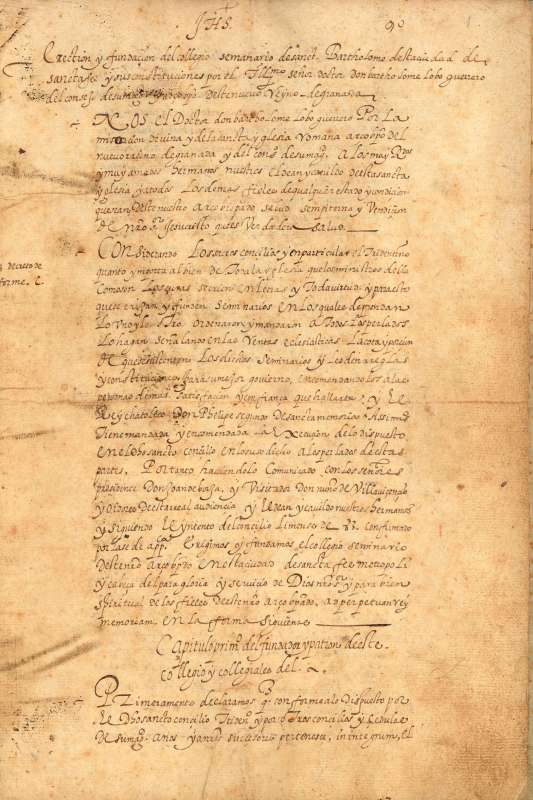 JHS.
Erection y fundacion del collegio seminario de sanct Bartholome desta ciudad de
sanctafee y sus constituciones por el Illmo señor doctor don bartholome lobo guerrero
del consejo de su mag. Arçobispo deste nuevo Reyno de granada
NOS el Doctor don bartholome lobo guerrero Por La
miseraon divina y de la sancta yglesia romana arçobpo del
nuevo reino de granada y del cons. de su mag. A los muy Rdos
y muy amados hermanos nuestros el dean y cavildo desta sancta
yglesia y a todos Los demas fieles de qualquier estado y condicion
que sean deste nuestro arçobispado salud sempiterna y
de Nro Sr. Jesuchristo que es Verdadera salud.
CONsiderando Los sacros concilios y en particular el Tridentino
quanto ynporta al bien de Toda la yglesia que los ministros della
Como son Los curas sean en letras y Toda virtud y para esto
que se erijan y funden Seminarios en Los quales deprendan
Lo Uno y lo otro ordenaron y mandaron a Todos Los perlados
Lo hagan señalando en las Rentas eclesiasticas
de que se sustenten Los dichos Seminarios y les den reglas
y constituciones para su mejor govierno, encomendandolos a las
personas de mas satisfacion y confiança que hallaren, y El
Rey chatolico Don Phelipe segundo de sancta memoria Assimismo
Tiene mandada y encomendada La Execucion de lo dispuesto
en el dho sancto concilio en los susodicho a los perlados destas
partes. Por tanto haviendolo Comunicado con los señores
presidente Don Joan de borja, y Visitador Don nuño de Villavicençio
y oydores desta real audiencia y el dean y cavildo nuestros hermanos
y siguiendo el yntento del concilio Limense de 83. confirmado
por la se de app. Erigimos y fundamos el collegio seminario
deste nro arçobpdo en esta ciudad de sancta fee metropoli
y cabeça del para gloria y servicio de Dios nro Sr y para bien
spiritual de los fieles deste nro arçobpado, ad perpetuam rey
memoriam, en La forma siguiente
Capitulo prim. del fundador y patron deste
collegio y collegiales del.
Primeramente declaramos q conforme a lo dispuesto por
El Dho sancto concilio Tridentino y Tros concilios y Cedulas
de su mag. A nos y a nros sucesores pertenesce, in integrum, El